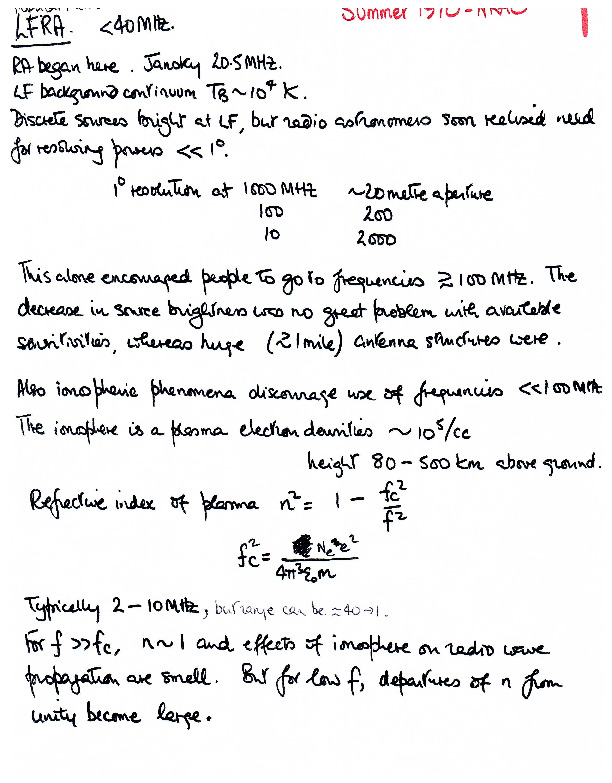 Summer 1970 - NRAO
LFRA. <40MHz.
RA began here. Jansky 20.5MHz.
LF background continuum T_B ~ 10⁴ K.
Discrete sources bright at LF, but radio astronomers soon realised need
for resolving powers << 1°.
1° resolution at 1000 MHz ~20 metre aperture
100 200
10 2000
This alone encouraged people to go to frequencies ≳ 100 MHz. The
decrease in source brightness was no great problem with available
sensitivities, whereas huge (≳1 mile) antenna structures were.
Also ionospheric phenomena discourage use of frequencies <<100 MHz
The ionosphere is a plasma electron densities ~ 10⁵/cc
height 80 - 500 km above ground.
Refractive index of plasma n² = 1 - fc²/f²
fc² = Ne e²/4π²ε₀m
Typically 2 - 10 MHz, but range can be ≈ 40→1.
For f >> fc, n ~ 1 and effects of ionosphere on radio wave
propagation are small. But for low f, departures of n from
unity become large.